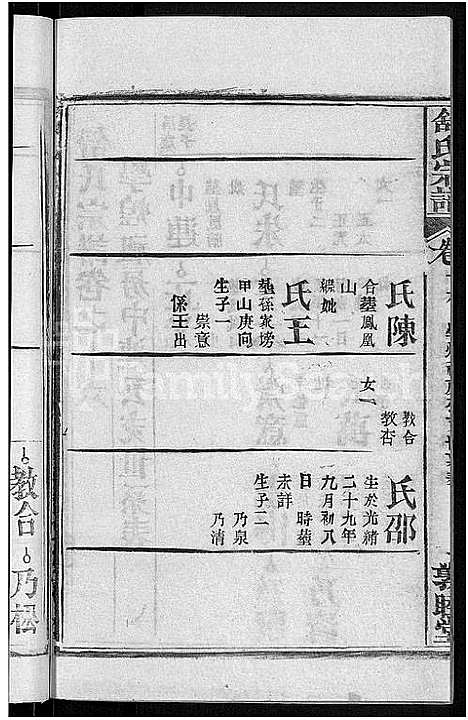 舒氏宗譜
卷
敦睦堂
教合
教杏
氏陳
合塟鳳凰
山
繼娩
氏王
塟孫家塝
甲山庚向
生子一
崇意
係王出
女一
氏邵
生於光緒
二十九年
九月初八
日 時塟
未詳
生子二
乃泉
乃清
教合 乃松
FamilySearch